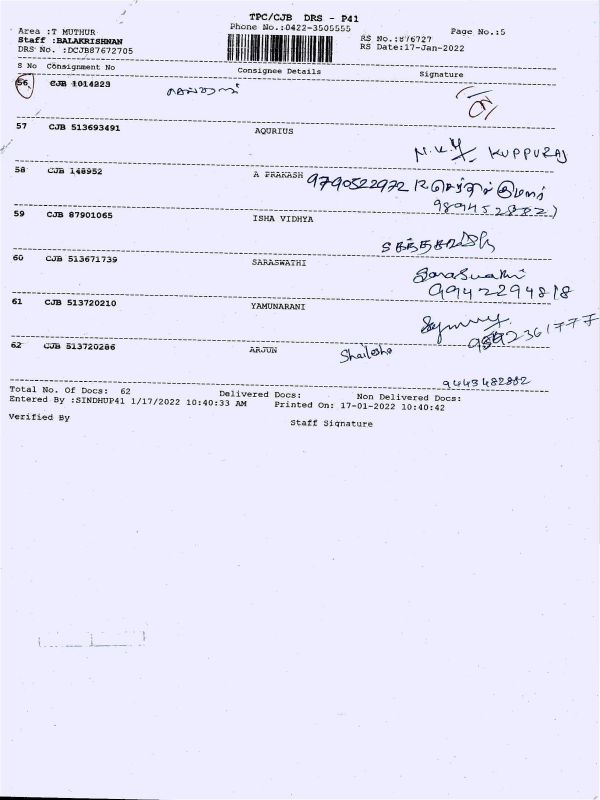 TPC/CJB DRS - P41
Area :T MUTHUR Phone No.:0422-3505555 Page No.:5
Staff :BALAKRISHNAN RS No.:876727
DRS No. :DCJB87672705 RS Date:17-Jan-2022
S No Consignment No Consignee Details Signature
56 CJB 1014223
57 CJB 513693491 AQURIUS
N.K. KUPPURAJ
58 CJB 148952 A PRAKASH 9790522972
59 CJB 87901065 ISHA VIDHYA
60 CJB 513671739 SARASWATHI
Saraswathi
9942294818
61 CJB 513720210 YAMUNARANI
62 CJB 513720286 ARJUN Shailesha
9443482882
Total No. Of Docs: 62 Delivered Docs: Non Delivered Docs:
Entered By :SINDHUP41 1/17/2022 10:40:33 AM Printed On: 17-01-2022 10:40:42
Verified By Staff Signature